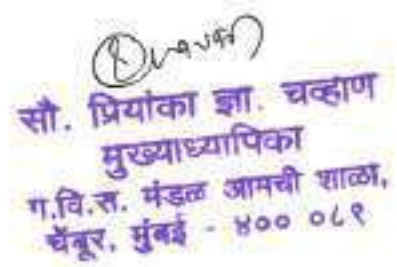 सौ. प्रियांका ज्ञा. चव्हाण
मुख्याध्यापिका
ग.वि.स. मंडळ आमची शाळा,
चेंबूर, मुंबई - ४०० ०८९